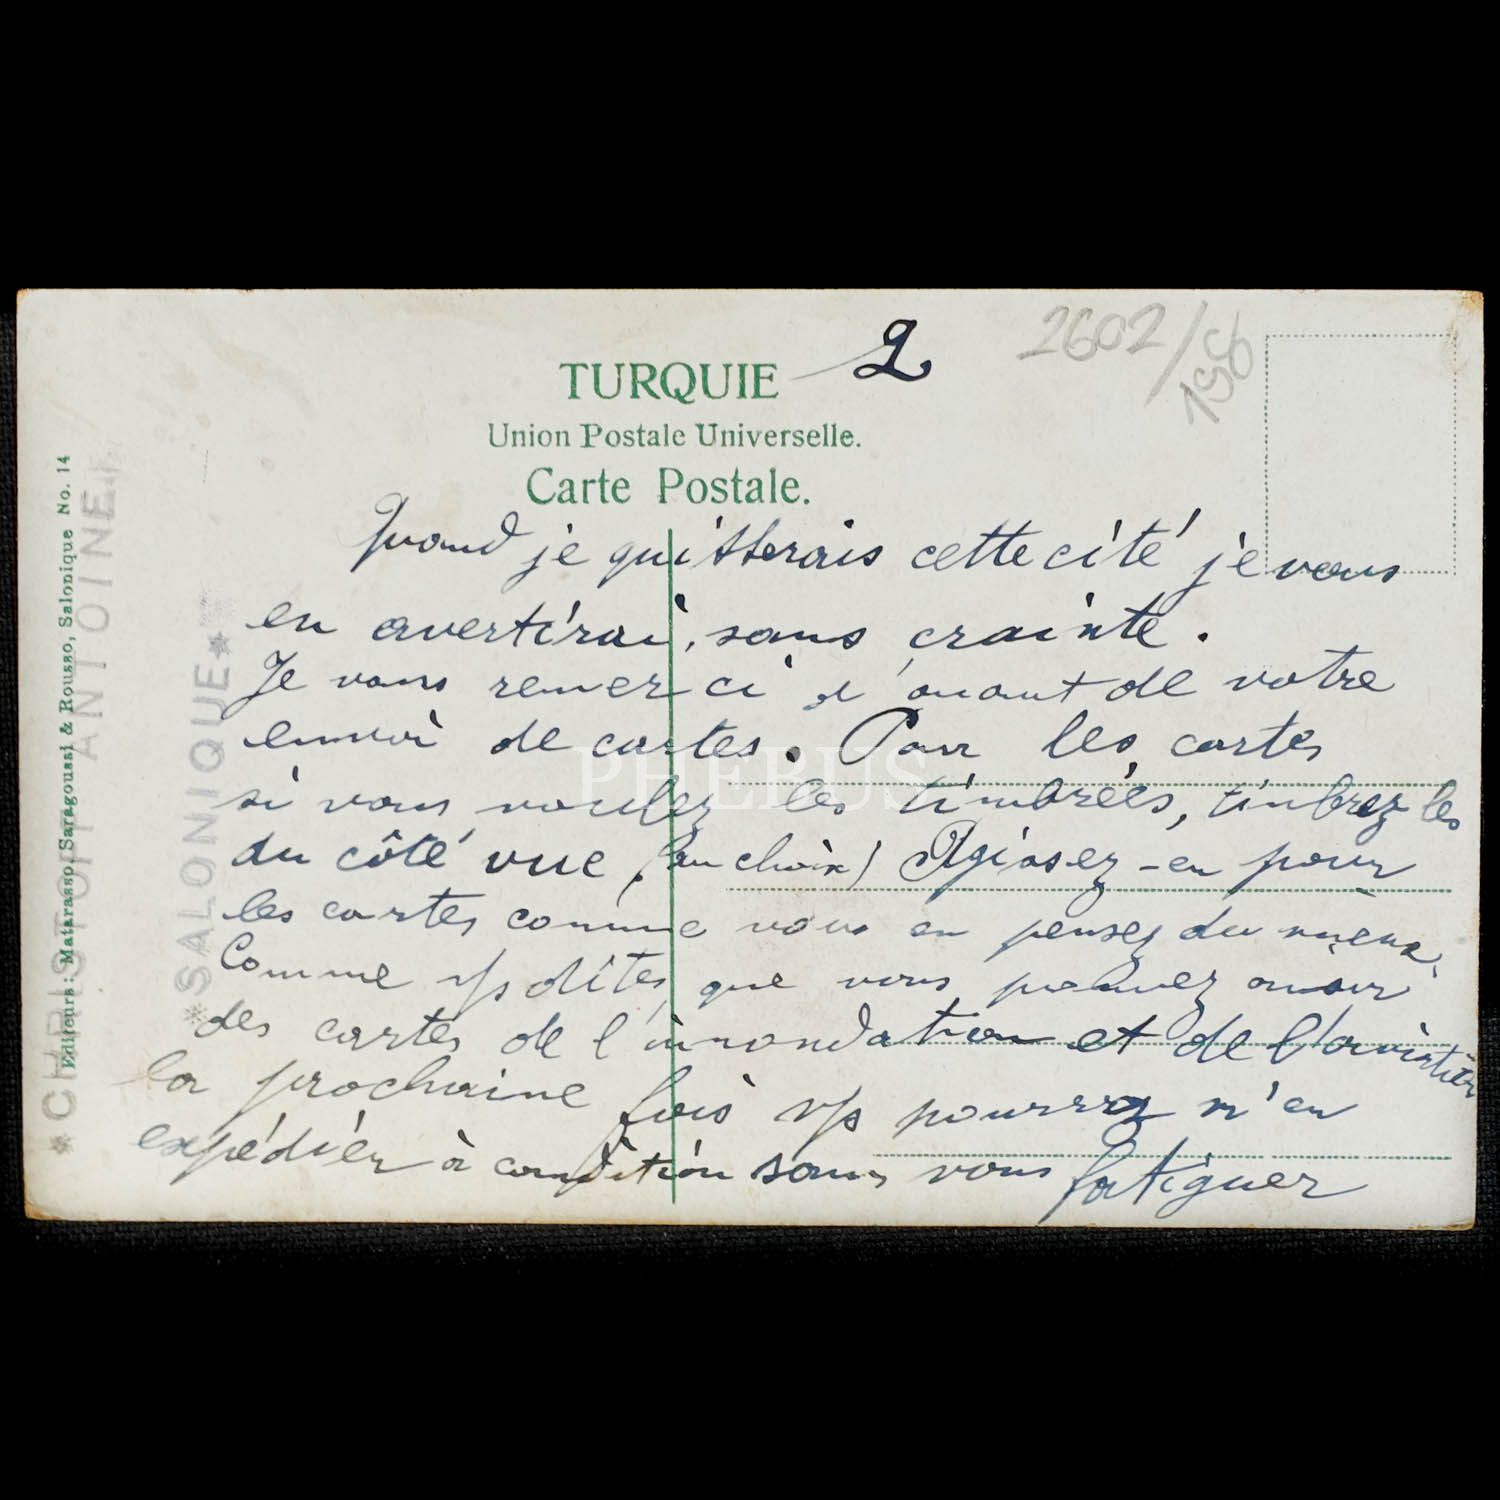 2
2602/198
TURQUIE
Union Postale Universelle.
Carte Postale.
Quand je quitterais cette cité je vous
en avertirai, sans crainte.
Je vous remerci d'avant de votre
envoi de cartes. Pour les cartes
si vous voulez les timbrées, timbrez les
du côté vue, (au choix) Agissez-en pour
les cartes comme vous en pensez du mieux.
Comme vs dites, que vous pouvez avoir
des cartes de l'innondation et de l'aviation
la prochaine fois vs pourrez m'en
expédier à condition sans vous fatiguer
Editeurs: Matarasso, Saragoussi & Rousso, Salonique No. 14
*CHRISTOFF ANTOINE
*SALONIQUE*
PHEBUS